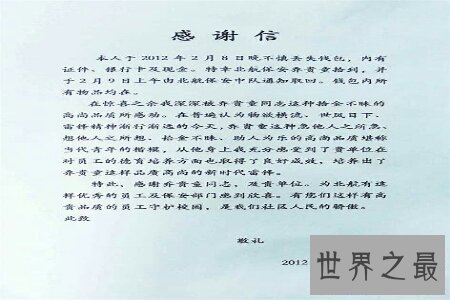 感 谢 信
本人于2012年2月8日晚不慎丢失钱包，内有
证件、银行卡及现金。特幸北航保安乔贵童拾到，并
于2月9日上午由北航保安中队通知取回。钱包内所
有物品均在。
在惊喜之余我深深被乔贵童同志这种拾金不昧的
高尚品质所感动。在普遍认为物欲横流，世风日下、
雷锋精神渐行渐远的今天，乔贵童这种急他人之所急、
想他人之所想、拾金不昧、助人为乐的高尚品质堪称
当代青年的楷模，从他身上我充分感受到了贵单位在
对员工的德育培养方面也取得了良好成效，培养出了
乔贵童这样品质高尚的新时代雷锋。
特此，感谢乔贵童同志，及贵单位。为北航有这
样优秀的员工及保安部门感到欣喜。有您们这样有高
贵品质的员工守护校园，是我们社区人民的骄傲。
此致
敬礼
2012
世界之最